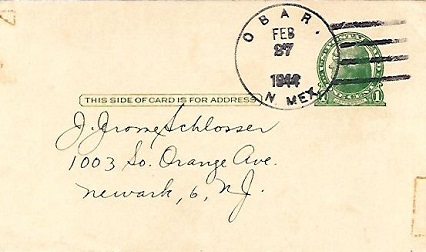 OBAR.
FEB
27
1944
N MEX.
THIS SIDE OF CARD IS FOR ADDRESS
1
J. Jrome Schlosser
1003 So. Orange Ave.
Newark, 6, N.J.